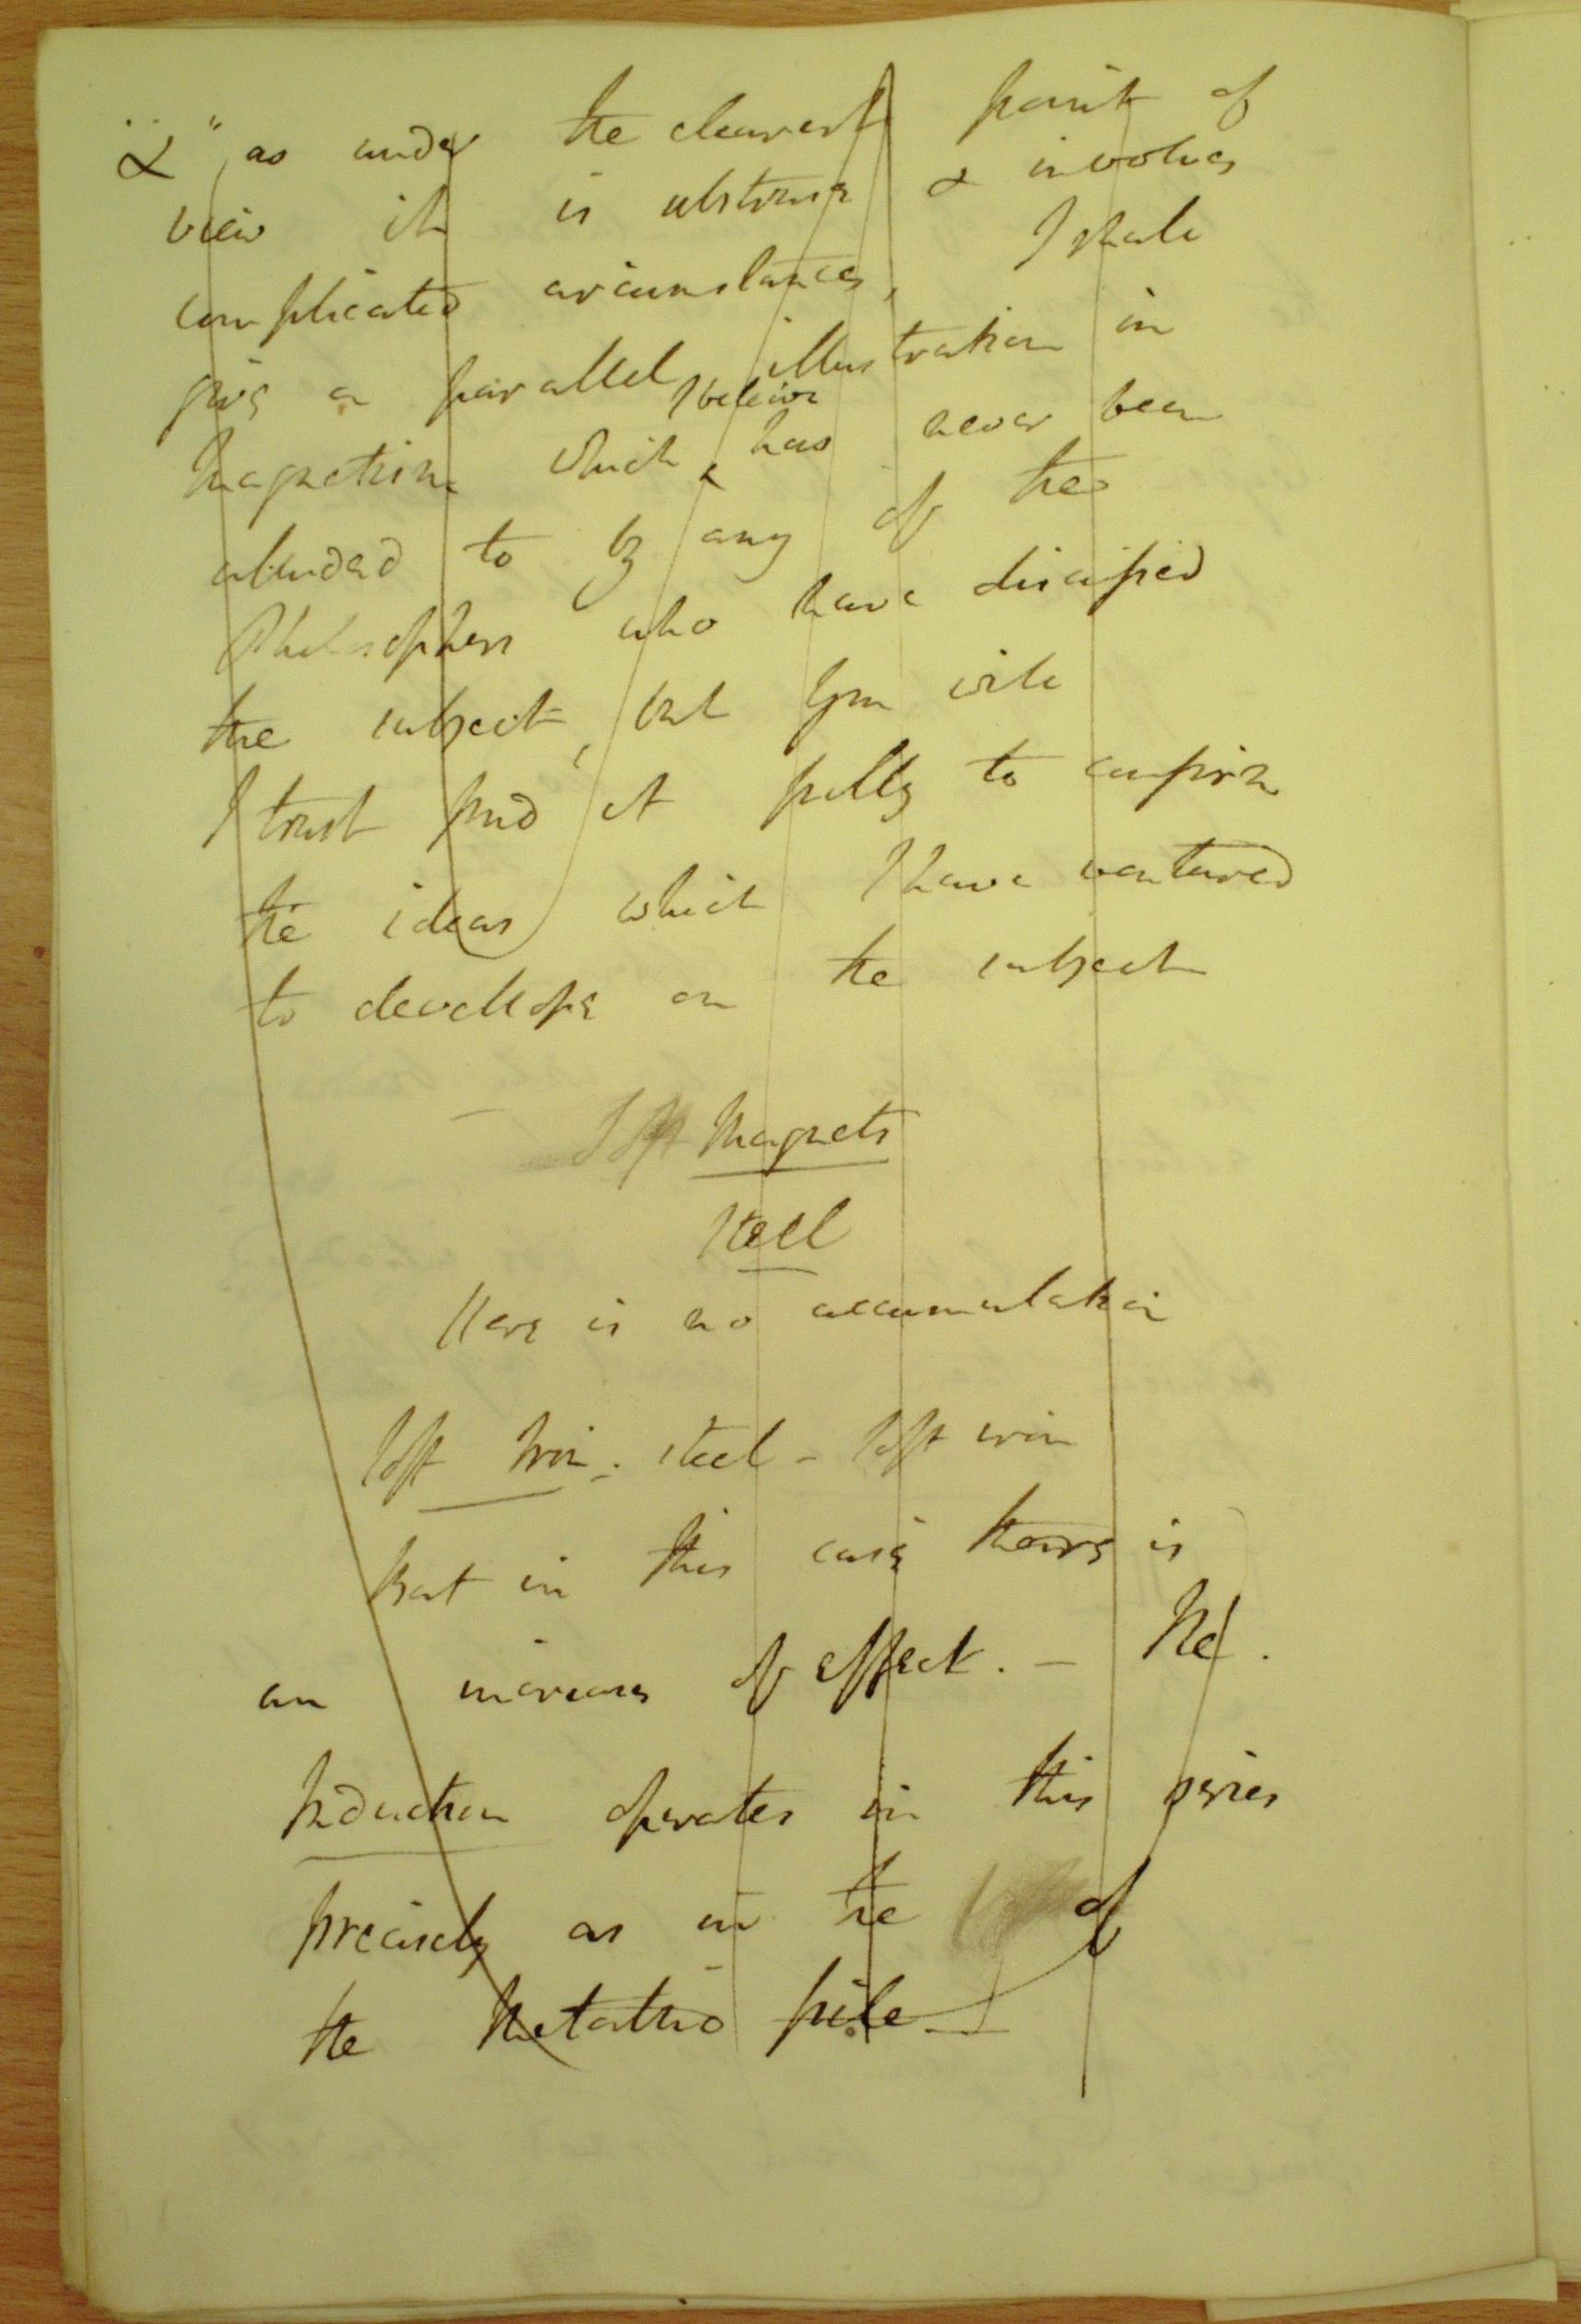 "& as under the clearest point of
view it is abstruse & involves
complicated circumstances, I shall
give a parallel illustration in
Magnetism which I believe has never been
attended to by any of the
Philosophers who have discussed
the subject, but you will
I trust find it fully to confirm
the ideas which I have ventured
to develope on the subject
Soft Magnets
Steel
Here is no accumulation
Soft Iron. steel - soft iron
But in this case there is
an increase of effect. - The
Induction operates in this series
precisely as in the of
the pile -